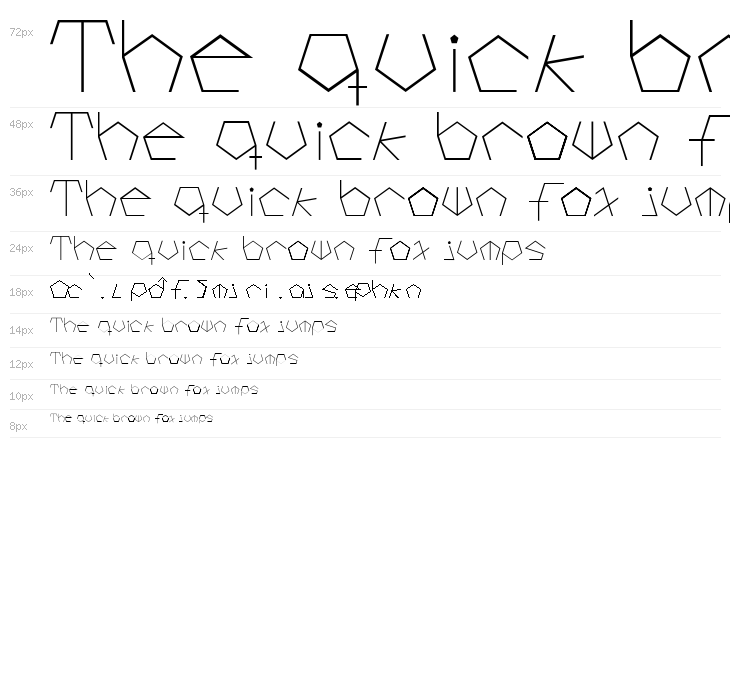 72px The quick br
48px The quick brown f
36px The quick brown fox jum
24px The quick brown fox jumps
18px
14px The quick brown fox jumps
12px The quick brown fox jumps
10px The quick brown fox jumps
8px The quick brown fox jumps